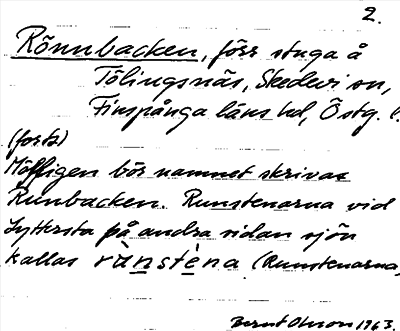 2.
Rönnbacken, förr stuga å
Tölingsnäs, Skedevi sn,
Finspånga läns hd, Östg. l.
(forts)
Möjligen bör namnet skrivas
Runbacken. Runstenarna vid
Lyttersta på andra sidan sjön
kallas rùnstèna (Runstenarna,
Bernt Olsson 1963.